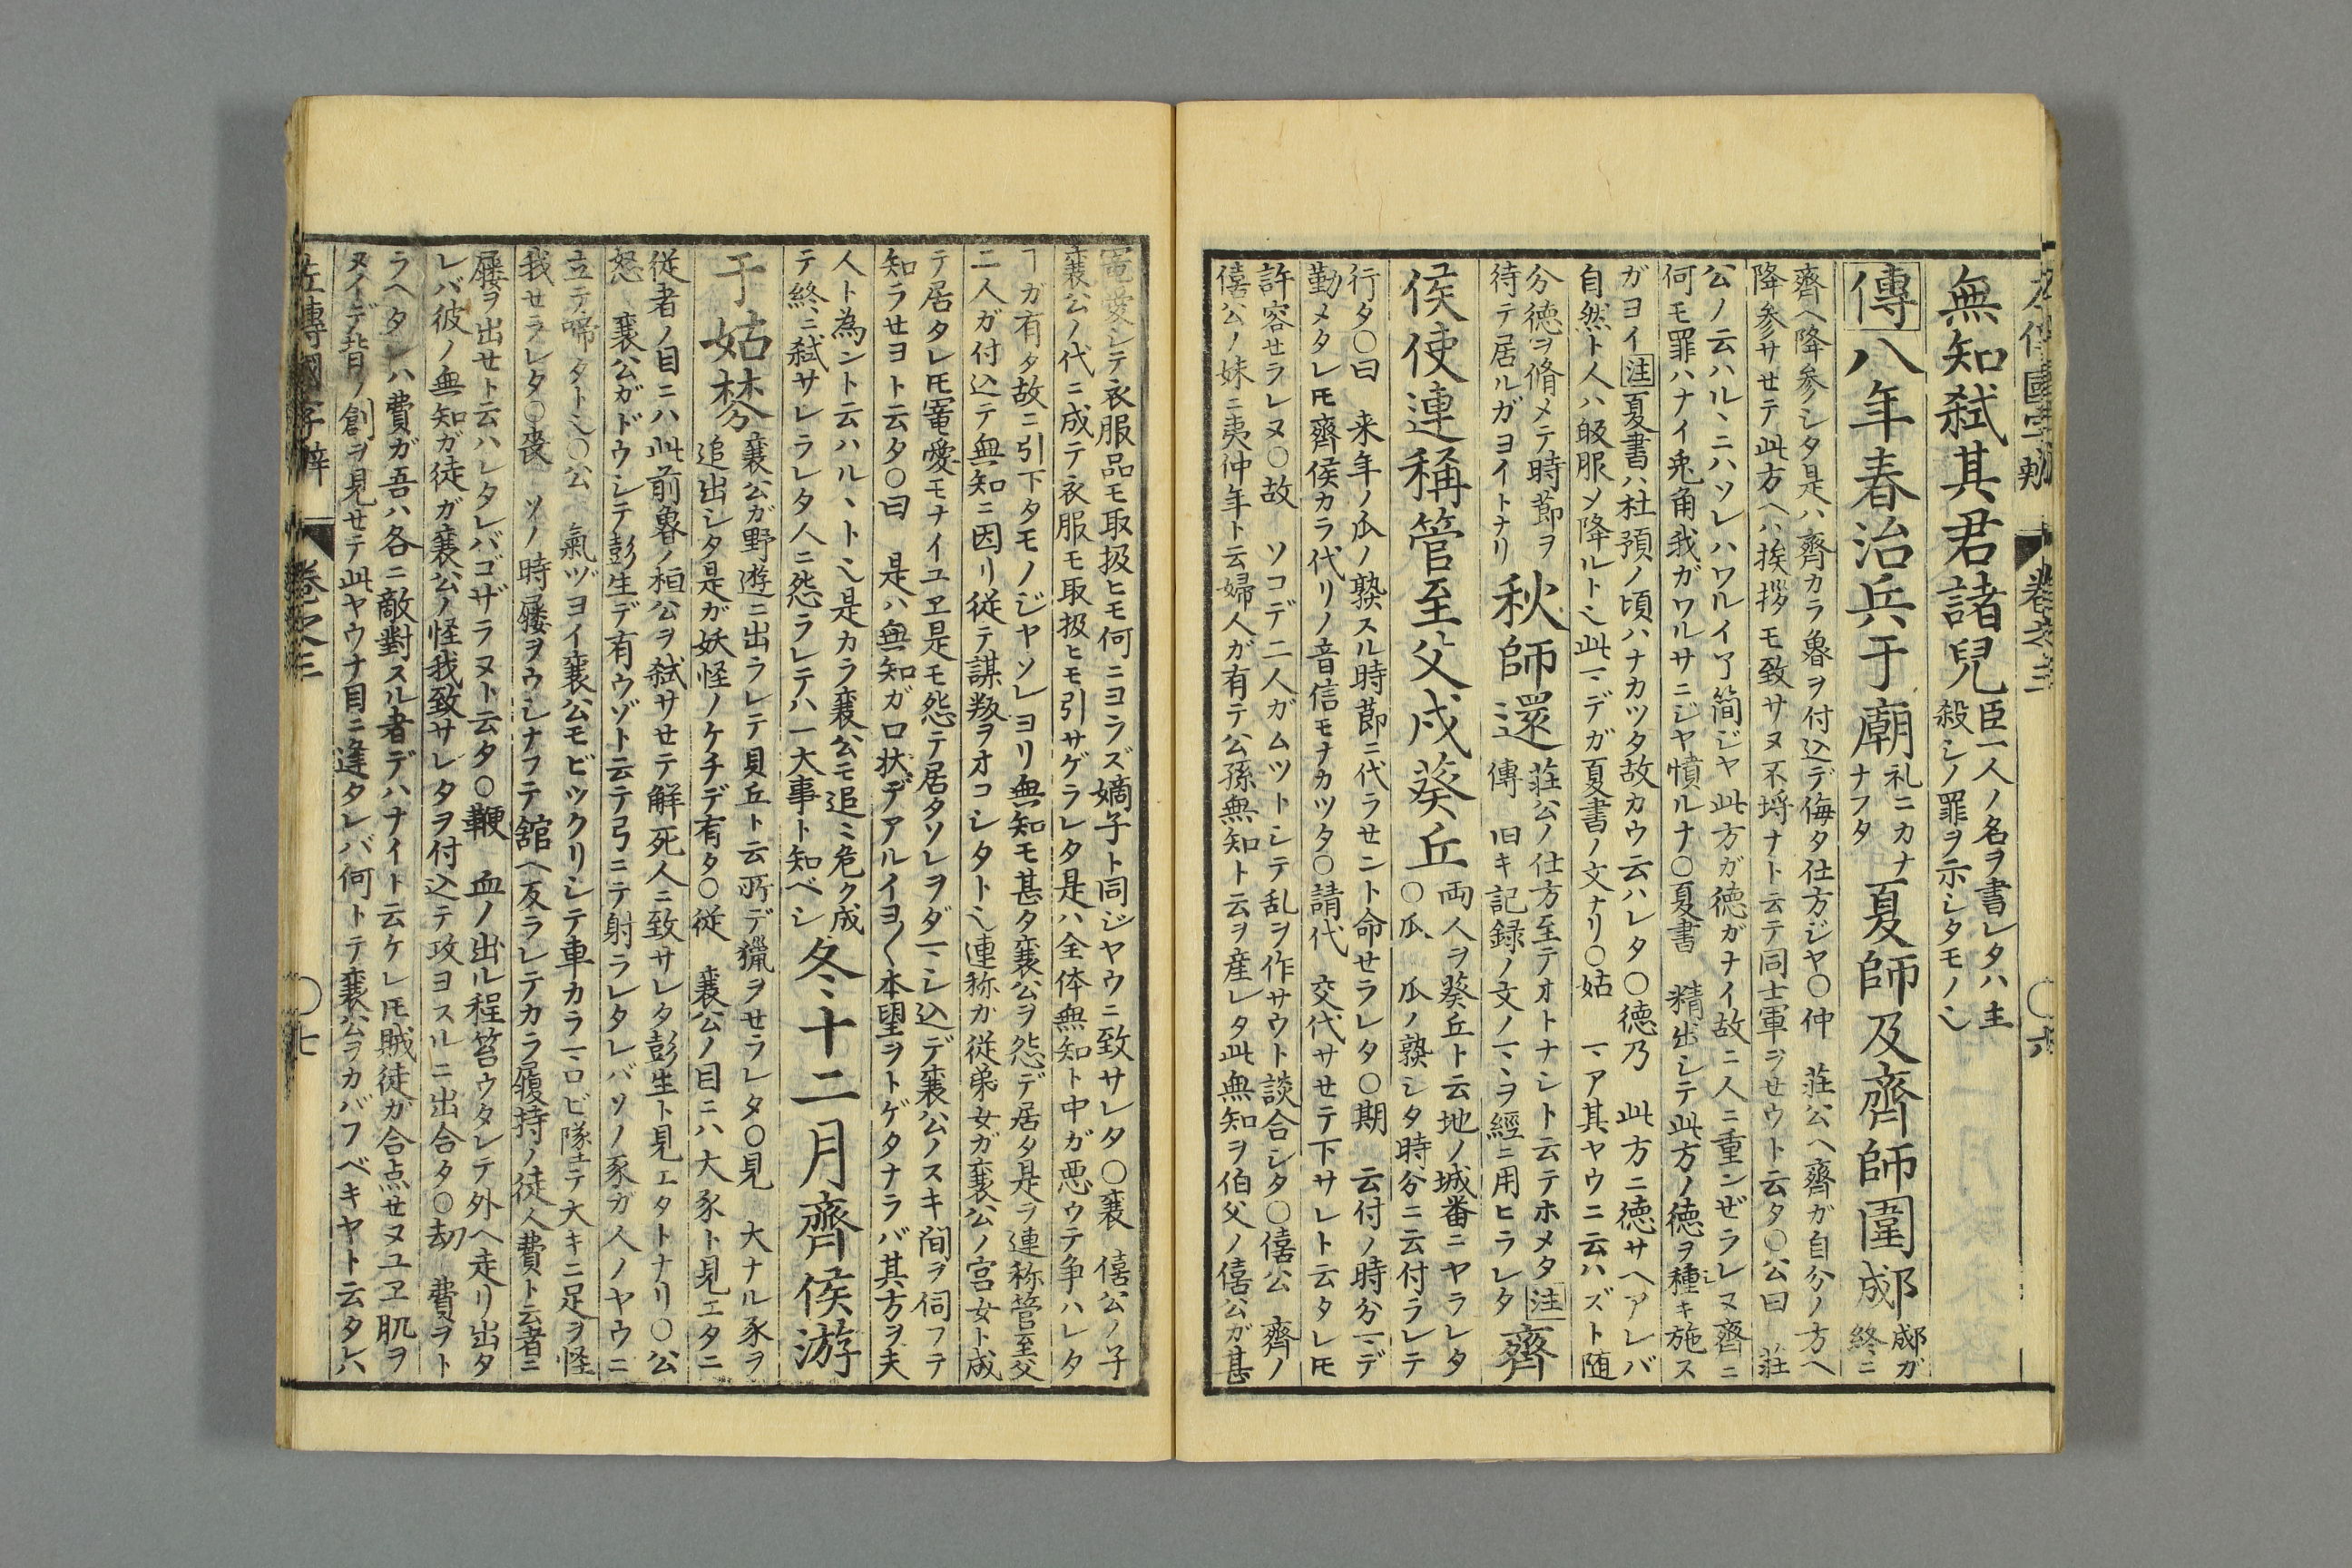 左傳國字辨 卷之三 〇六
無知弑其君諸兒
臣一人ノ名ヲ書レタハ主
殺シノ罪ヲ示シタモノ乄
傳八年春治兵于廟
礼ニカナ
ナフタ
夏師及齊師圍郕
郕ガ
終ニ
齊ヘ降参シタ是ハ齊カラ魯ヲ付込デ侮タ仕方ジヤ〇仲 莊公ヘ齊ガ自分ノ方ヘ
降参サセテ此方ヘハ挨拶モ致サヌ不埒ナト云テ同士軍ヲセウト云タ〇公曰 莊
公ノ云ハルヽニハソレハワルイ了簡ジヤ此方ガ徳ガナイ故ニ人ニ重ンゼラレヌ齊ニ
何モ罪ハナイ兎角我ガワルサニジヤ憤ルナ〇夏書 精出シテ此方ノ徳ヲ種キ施ス
ガヨイ注夏書ハ杜預ノ頃ハナカツタ故カウ云ハレタ〇徳乃 此方ニ徳サヘアレバ
自然ト人ハ皈服メ降ルト乄此ヿデガ夏書ノ文ナリ〇姑 ヿア其ヤウニ云ハズト随
分徳ヲ脩メテ時節ヲ
待テ居ルガヨイトナリ
秋師還
莊公ノ仕方至テオトナシト云テホメタ注
傳 旧キ記録ノ文ノヿヲ經ニ用ヒラレタ
齊
侯使連稱管至父戍葵丘
両人ヲ葵丘ト云地ノ城番ニヤラレタ
〇瓜 瓜ノ熟シタ時分ニ云付ラレテ
行タ〇曰 来年ノ瓜ノ熟スル時節ニ代ラセント命セラレタ〇期 云付ノ時分ヿデ
勤メタレ𪜈齊侯カラ代リノ音信モナカツタ〇請代 交代サセテ下サレト云タレ𪜈
許容セラレヌ〇故 ソコデ二人ガムツトシテ乱ヲ作サウト談合シタ〇僖公 齊ノ
僖公ノ妹ニ夷仲年ト云婦人ガ有テ公孫無知ト云ヲ産レタ此無知ヲ伯父ノ僖公ガ甚
寵愛シテ衣服品モ取扱ヒモ何ニヨラズ嫡子ト同ジヤウニ致サレタ〇襄 僖公ノ子
襄公ノ代ニ成テ衣服モ取扱ヒモ引サゲラレタ是ハ全体無知ト中ガ悪ウテ争ハレタ
ヿガ有タ故ニ引下タモノジヤソレヨリ無知モ甚タ襄公ヲ怨デ居タ是ヲ連称管至父
二人ガ付込テ無知ニ因リ従テ謀叛ヲオコシタト乄連称ガ従弟女ガ襄公ノ宮女ト成
テ居タレ𪜈寵愛モナイユヱ是モ怨テ居タソレヲダヿシ込デ襄公ノスキ間ヲ伺フテ
知ラセヨト云タ〇曰 是ハ無知ガ口状デアルイヨ〱本望ヲトゲタナラバ其方ヲ夫
人ト為ント云ハルヽト乄是カラ襄公モ追ミ危ク成
テ終ニ弑サレラレタ人ニ怨ラレテハ一大事ト知ベシ
冬十二月齊侯游
于姑棼
襄公ガ野遊ニ出ラレテ貝丘ト云所デ猟ヲセラレタ〇見 大ナル豕ヲ
追出シタ是ガ妖怪ノケチデ有タ〇従 襄公ノ目ニハ大豕ト見エタニ
従者ノ目ニハ此前魯ノ桓公ヲ弑サセテ解死人ニ致サレタ彭生ト見エタトナリ〇公
怒 襄公ガドウシテ彭生デ有ウゾト云テ弓ニテ射ラレタレバソノ豕ガ人ノヤウニ
立テ啼タト乄〇公 氣ヅヨイ襄公モビツクリシテ車カラヿロビ隊テ大キニ足ヲ怪
我セラレタ〇喪 ソノ時屨ヲウシナフテ舘ヘ反ラレテカラ履持ノ徒人費ト云者ニ
屨ヲ出セト云ハレタレバゴザラヌト云タ〇鞭 血ノ出ル程笞ウタレテ外ヘ走リ出タ
レバ彼ノ無知ガ徒ガ襄公ノ怪我致サレタヲ付込テ攻ヨスルニ出合タ〇刧 費ヲト
ラヘタレハ費ガ吾ハ各ニ敵對スル者デハナイト云ケレ𪜈賊徒ガ合点セヌユヱ肌ヲ
ヌイデ背ノ創ヲ見セテ此ヤウナ目ニ逢タレバ何トテ襄公ヲカバフベキヤト云タレハ
左傳國字辨 卷之三 〇七